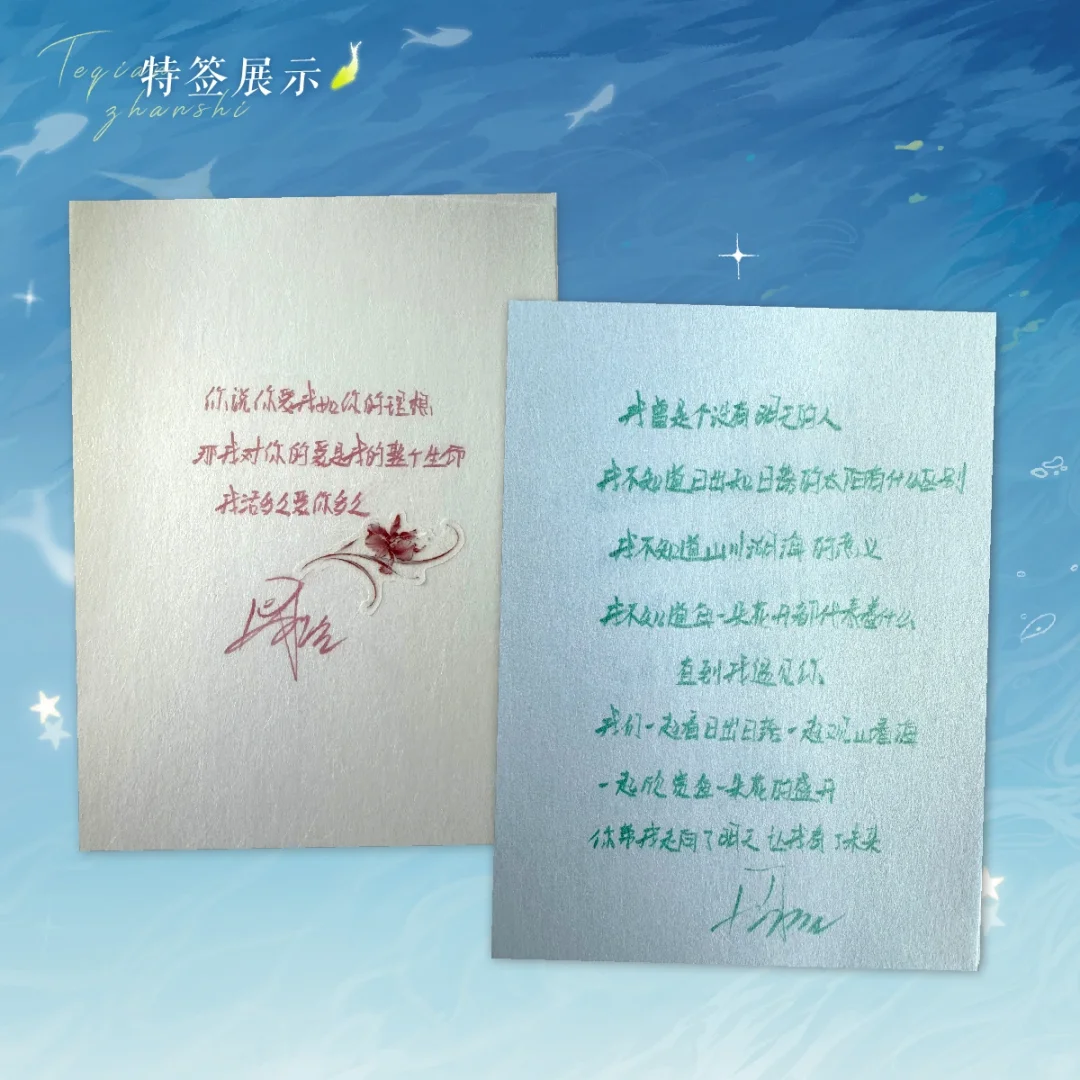 Teqian
特签展示
zhanshi
你说你爱我如你的理想
那我对你的爱是我的整个生命
我活多久爱你多久
我曾是个没有明天的人
我不知道日出和日落的太阳有什么区别
我不知道山川湖海的意义
我不知道每一朵花开都代表着什么
直到我遇见你
我们一起看日出日落一起观山看海
一起欣赏每一朵花的盛开
你带我走向了明天 让我有了未来